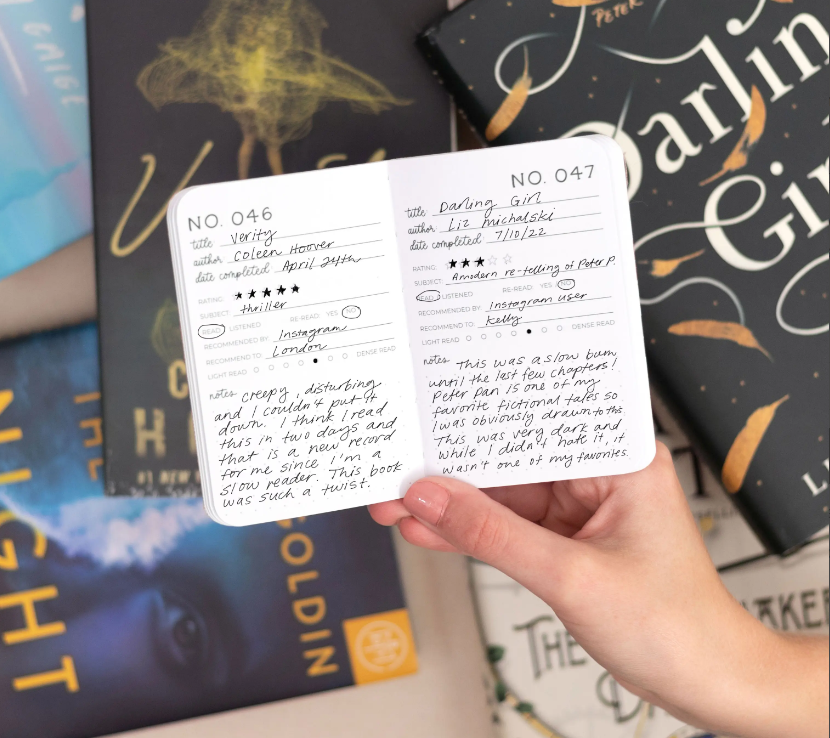 GAIGE
PETER
Darlin
Gir
L
V
C
H
#1 NEW
NIGHT
THE
GOLDIN
THE
MAKER
D
NO. 046
title Verity
author Coleen Hoover
date completed April 24th
RATING: ★★★★★
SUBJECT: thriller
READ LISTENED RE-READ: YES NO
RECOMMENDED BY: Instagram
RECOMMEND TO: London
LIGHT READ ○ ○ ○ ○ ● ○ ○ DENSE READ
notes creepy, disturbing
and I couldn't put it
down. I think I read
this in two days and
that is a new record
for me since I'm a
slow reader. This book
was such a twist.
NO. 047
title Darling Girl
author Liz michalski
date completed 7/10/22
RATING: ★★★☆☆
SUBJECT: A modern re-telling of Peter P.
READ LISTENED RE-READ: YES NO
RECOMMENDED BY: Instagram user
RECOMMEND TO: Kelly
LIGHT READ ○ ○ ○ ○ ● ○ ○ DENSE READ
notes This was a slow burn
until the last few chapters!
Peter Pan is one of my
favorite fictional tales so
I was obviously drawn to this.
This was very dark and
while I didn't hate it, it
wasn't one of my favorites.